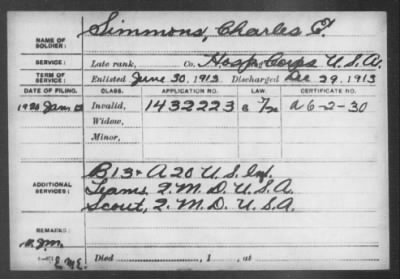 NAME OF SOLDIER: Simmons, Charles E.
SERVICE: Late rank, Co. Hosp. Corps U.S.A.
TERM OF SERVICE: Enlisted June 30, 1913 Discharged Dec 29, 1913
DATE OF FILING. CLASS. APPLICATION NO. LAW. CERTIFICATE NO.
Invalid, 1432223 A6-2-30
Widow,
Minor,
ADDITIONAL SERVICES: B 13 & A 20 U.S. Inf.
Teams. Q.M.D. U.S.A.
Scout, Q.M.D. U.S.A.
Died , 1 , at